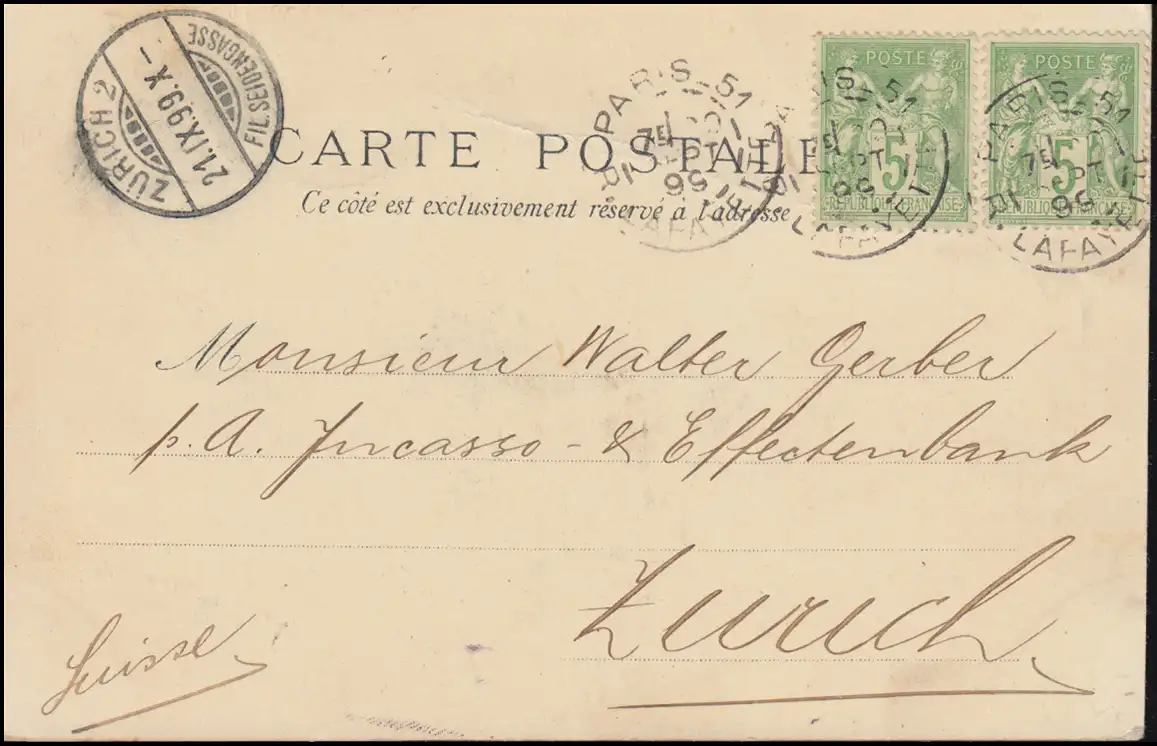 ZÜRICH 2
21.IX.99.X-
FIL.SEIDENGASSE
CARTE POSTALE
Ce côté est exclusivement réservé à l'adresse
PARIS-51
99
PARIS-51
99
LAFAYETTE
PARIS-51
99
LAFAYETTE
POSTE
5
REPUBLIQUE FRANÇAISE
POSTE
5
REPUBLIQUE FRANÇAISE
Monsieur Walter Gerber
p. A. Incasso- & Effectenbank
Zurich
Suisse